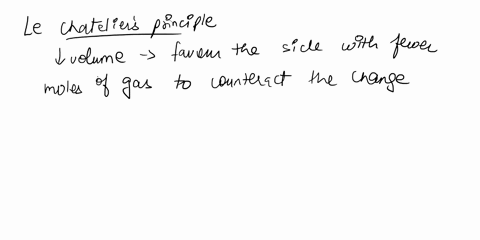 Le chatelier's principle
↓ volume -> favour the side with fewer
moles of gas to counteract the change